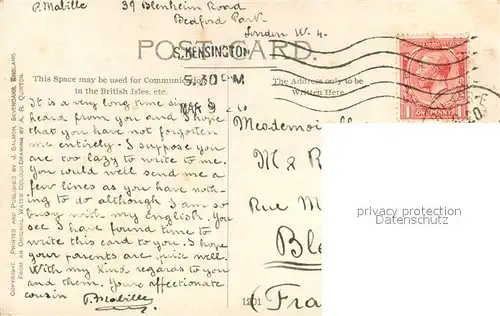 P. Mabille 39 Blenheim Road
Bedford Park
London W. 4.
POST CARD.
S. KENSINGTON
5.30 PM
MAR 9
This Space may be used for Communication
in the British Isles, etc.
The Address only to be
Written Here.
ONE PENNY
It is a very long time since I
heard from you and I hope
that you have not forgotten
me entirely. I suppose you
are too lazy to write to me.
You could well send me a
few lines as you have noth-
ing to do although I am so
busy with my english. You
see I have found time to
write this card to you. I hope
your parents are quite well.
With my kind regards to you
and them. Yours affectionate
cousin P. Mabille
Mademoiselle
M & R
Rue M
Ble
(Fra
1201
privacy protection
Copyright. Printed and Published by J. Salmon, Sevenoaks, England.
From an Original Water Colour Drawing by A. R. Quinton.